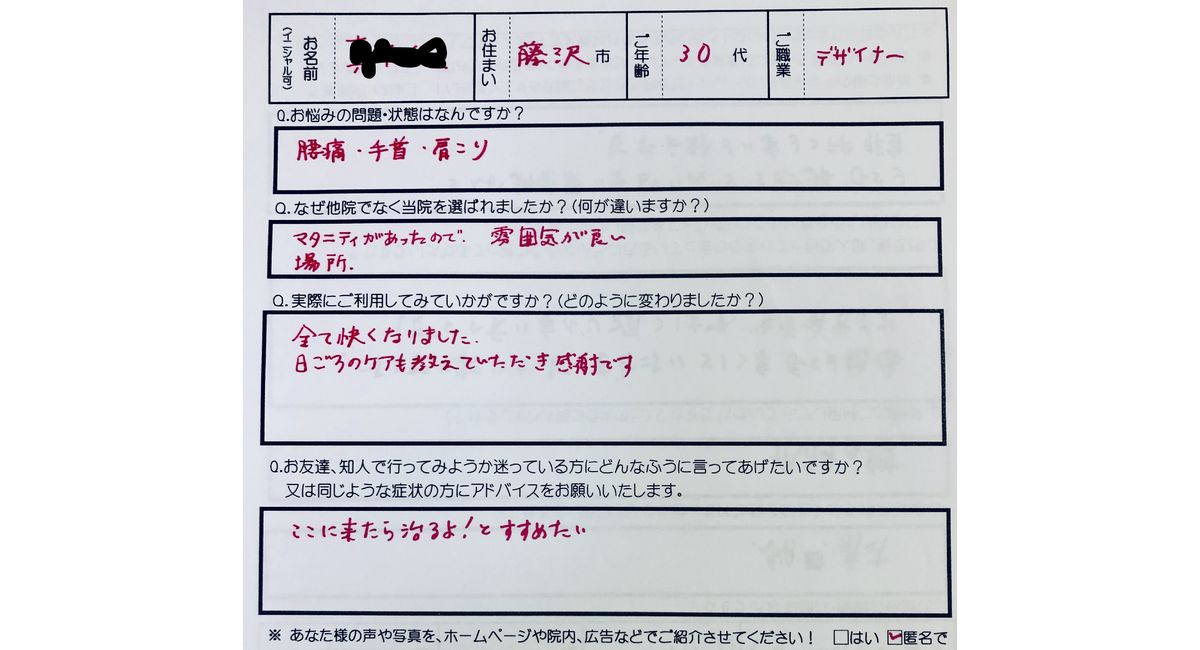 お名前
(イニシャル可)
お住まい 藤沢市
ご年齢 30代
ご職業 デザイナー
Q.お悩みの問題・状態はなんですか?
腰痛・手首・肩こり
Q.なぜ他院でなく当院を選ばれましたか?(何が違いますか?)
マタニティがあったので. 雰囲気が良い
場所.
Q.実際にご利用してみていかがですか?(どのように変わりましたか?)
全て快くなりました.
日ごろのケアも教えていただき感謝です
Q.お友達、知人で行ってみようか迷っている方にどんなふうに言ってあげたいですか?
又は同じような症状の方にアドバイスをお願いいたします。
ここに来たら治るよ!とすすめたい
※ あなた様の声や写真を、ホームページや院内、広告などでご紹介させてください! □はい ☑匿名で